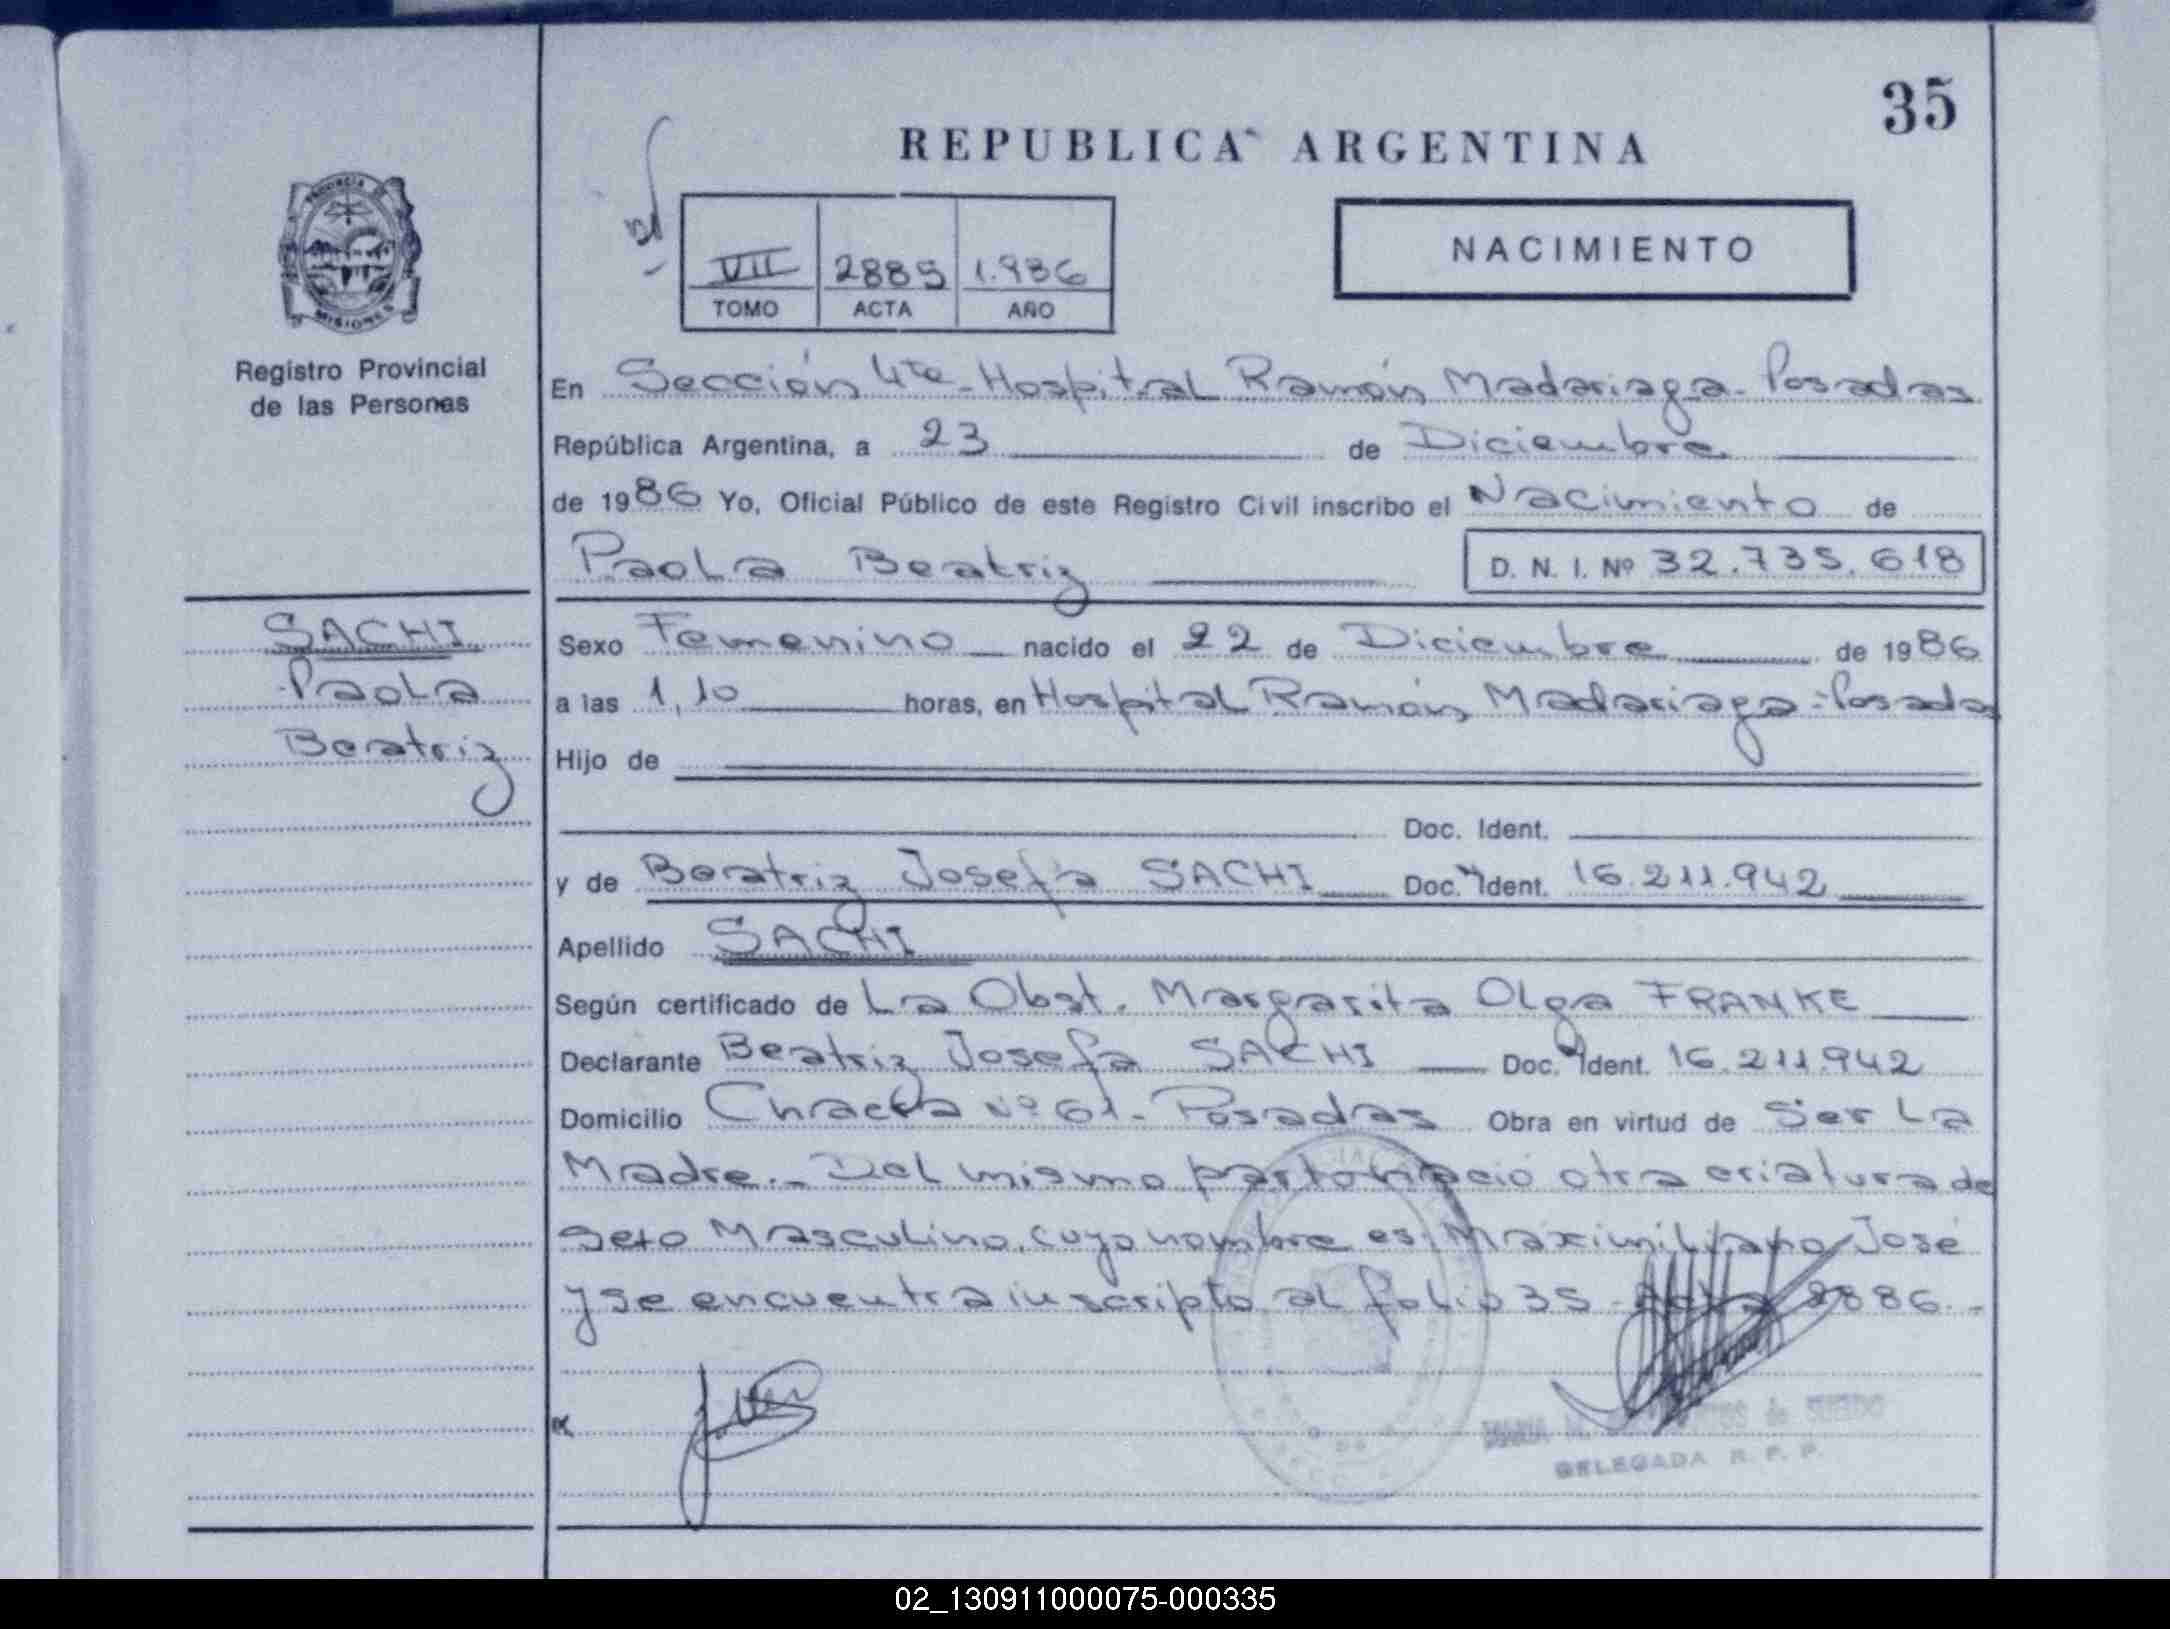 35
REPUBLICA ARGENTINA
PROVINCIA DE
MISIONES
Registro Provincial
de las Personas
VII 2885 1.986
TOMO ACTA AÑO
NACIMIENTO
En Sección 4ta - Hospital Ramón Madariaga - Posadas
República Argentina, a 23 de Diciembre
de 1986 Yo, Oficial Público de este Registro Civil inscribo el Nacimiento de
Paola Beatriz D. N. I. Nº 32.735.618
SACHI
Paola
Beatriz
Sexo Femenino nacido el 22 de Diciembre de 1986
a las 1,10 horas, en Hospital Ramón Madariaga - Posadas
Hijo de
Doc. Ident.
y de Beatriz Josefa SACHI Doc. Ident. 16.211.942
Apellido SACHI
Según certificado de La Obst. Margarita Olga FRANKE
Declarante Beatriz Josefa SACHI Doc. Ident. 16.211.942
Domicilio Chacra Nº 61 - Posadas Obra en virtud de Ser La
Madre.- Del mismo parto nació otra criatura de
sexo Masculino, cuyo nombre es Maximiliano José
y se encuentra inscripto al folio 35 - Acta 2886.-
DELEGADA R. P. P.
02_130911000075-000335